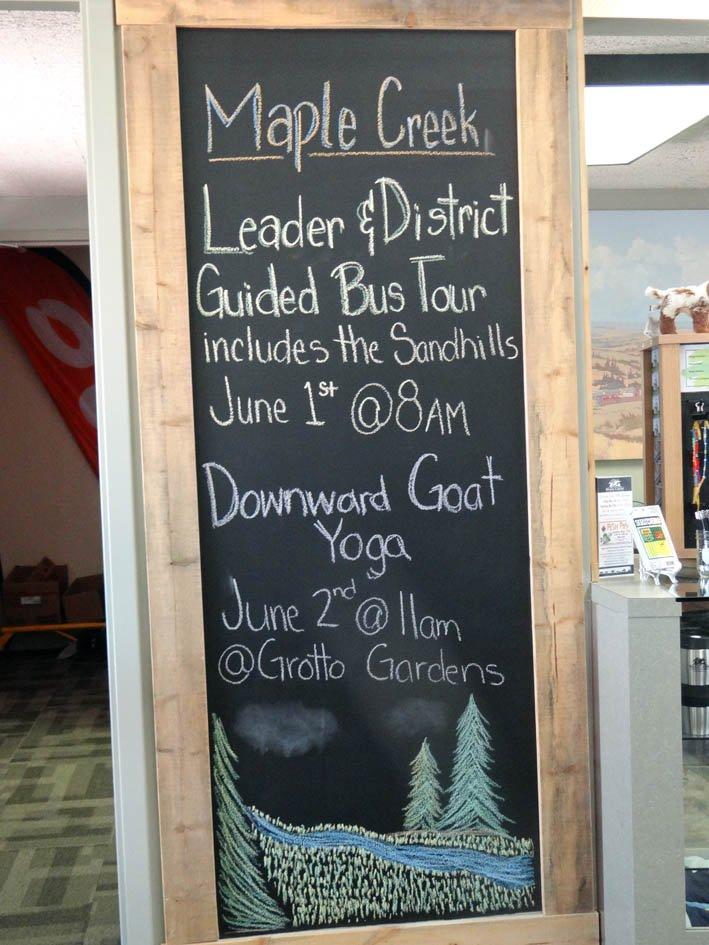 Maple Creek
Leader & District
Guided Bus Tour
includes the Sandhills
June 1st @ 8AM
Downward Goat
Yoga
June 2nd @ 11am
@ Grotto Gardens